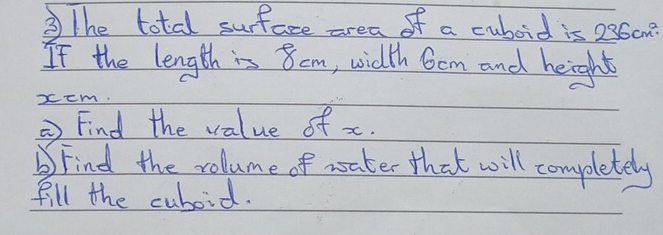 3) The total surface area of a cuboid is 236cm².
If the length is 8cm, width 6cm and height
xcm.
a) Find the value of x.
b) Find the volume of water that will completely
fill the cuboid.